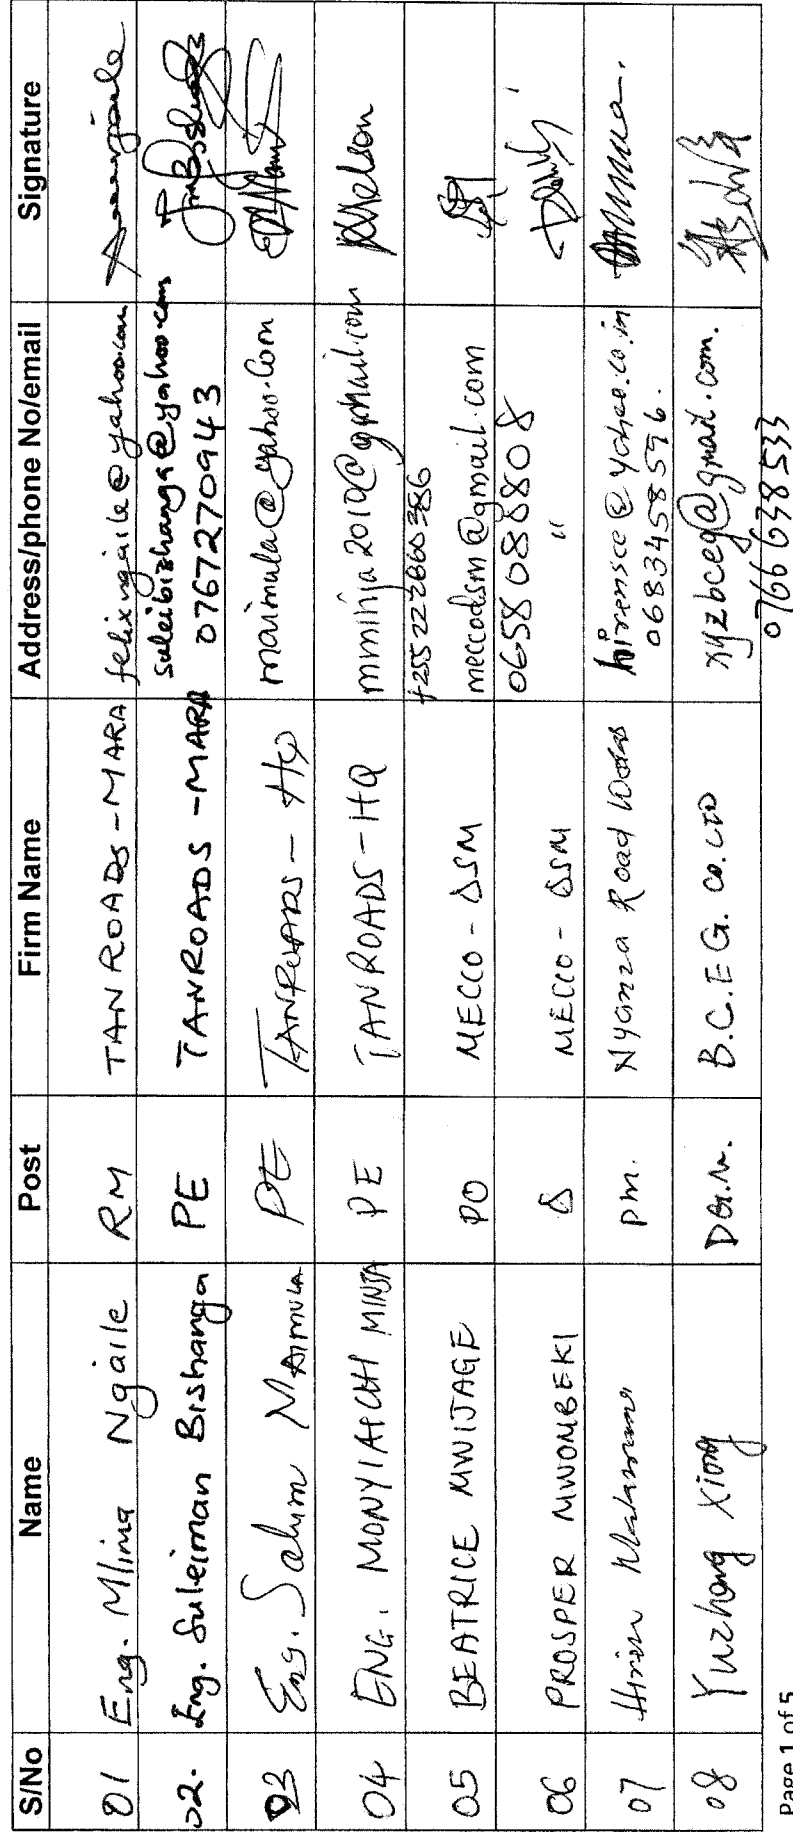 S/No Name Post Firm Name Address/phone No/email Signature
01 Eng. Mlima Ngaile RM TANROADS-MARA felixngaile@yahoo.com
02. Eng. Suleiman Bishanga PE TANROADS -MARA suleibizhanga@yahoo.com
0767270943
03 Eng. Salum Maimula PE TANROADS - HQ maimula@yahoo.com
04 ENG. MONYIAICHI MINJA PE TANROADS-HQ mminja2010@gmail.com
05 BEATRICE MWIJAGE PO MECCO - DSM meccodsm@gmail.com
06 PROSPER MWOMBEKI D MECCO - DSM 0658088808
"
07 Hiren PM. Nyanza Road Works hirensce@yahoo.co.in
0683458596.
08 Yuzhong Xiong B.C.E G. CO. LTD xyzbceg@gmail.com.
0766 638533
Page 1 of 5